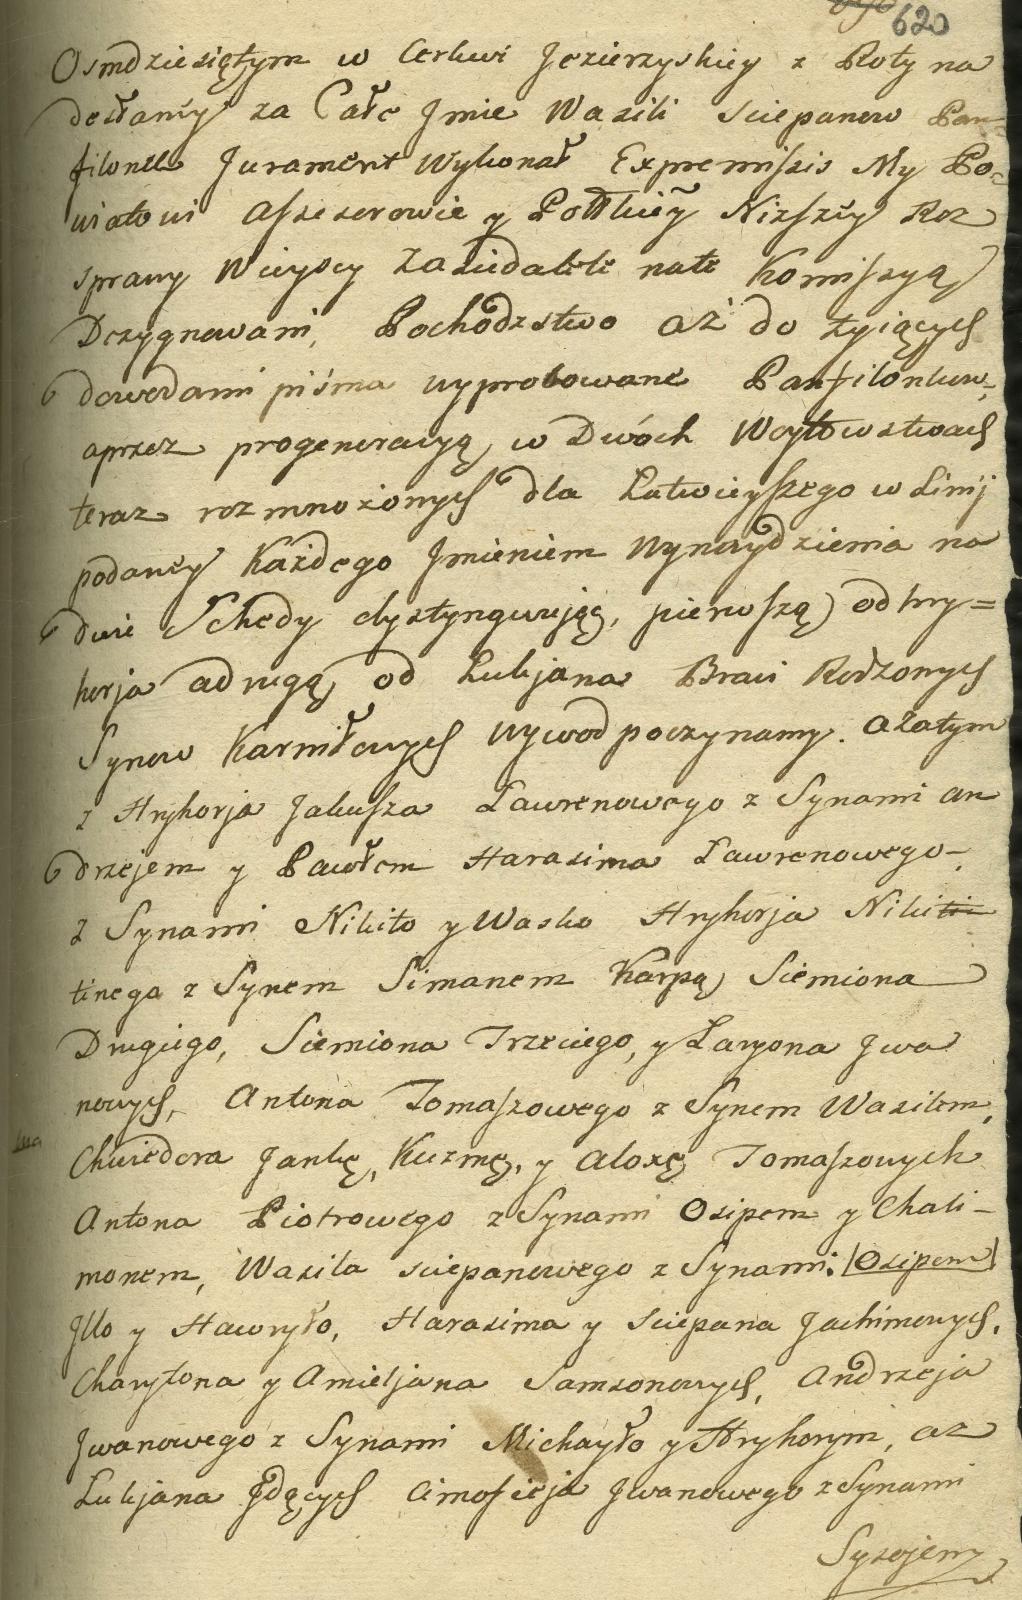 620
Osmdziesiętym w Cerkwi Jezierzyskiey z Roty na
desłaney za Całe Jmie Wasili Sciepanow Pan=
filonek Jurament Wykonał Expremissis My Po=
wiatowi Assesorowie y Pottkiey Nizszey Roz
sprawy Wieyscy Zasiedatele natę Komissyą
Dezygnowani, Pochodzstwo aż do żyiących
dowodami piśma wyprobowane Panfilonkow,
aprzez progeneracyą w Dwóch Woytowstwach
teraz rozmnożonych dla Łatwieyszego w Linij
podaney Każdego Jmieniem Wynaydzienia na
dwie Schedy dystyngwująę, pierwszą od hry=
horja adrugą od Łukjana Braci Rodzonych
Synow Karniłowych wywod poczynamy. aZatym
z Hryhorja Jakusza Ławrenowego z Synami an
drzejem y Pawłem Harasima Ławrenowego
z Synami Nikito y Wasko Hryhorja Nikiti
tinega z Synem Simanem Karpą Siemiona
Drugiego, Siemiona Trzeciego, y Łaryona Jwa
nowych, Antona Tomaszowego z Synem Wasilem,
Chwiedora Jankę, Kuzmę, y Aloxę Tomaszowych
Antona Piotrowego z Synami Osipem y Chali-
monem, Wasila sciepanowego z Synami: |Osipem|
Jllo y Hawryło, Harasima y Sciepana Jachimowych,
Charytona y Amieljana Samsonowych, Andrzeja
Jwanowego z Synami Michayło y Hryhorym, az
Łukjana Jdących Cimofieja Jwanowego z Synami
Sysojem